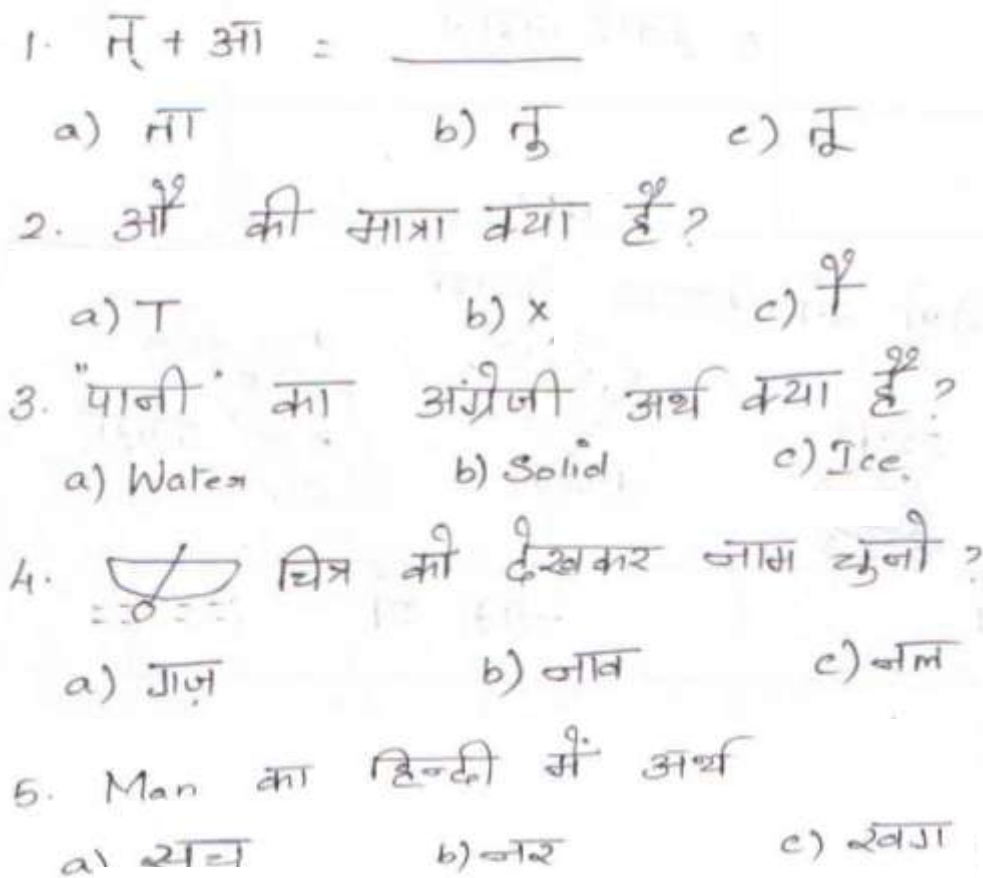 1. त् + आ = ______
a) ता b) तु c) तू
2. औ की मात्रा क्या है?
a) ा b) x c) ौ
3. "पानी" का अंग्रेजी अर्थ क्या है?
a) Water b) Solid c) Ice.
4. चित्र को देखकर नाम चुनो?
a) गज़ b) नाव c) नल
5. Man का हिन्दी में अर्थ
a) b) नर c) खग